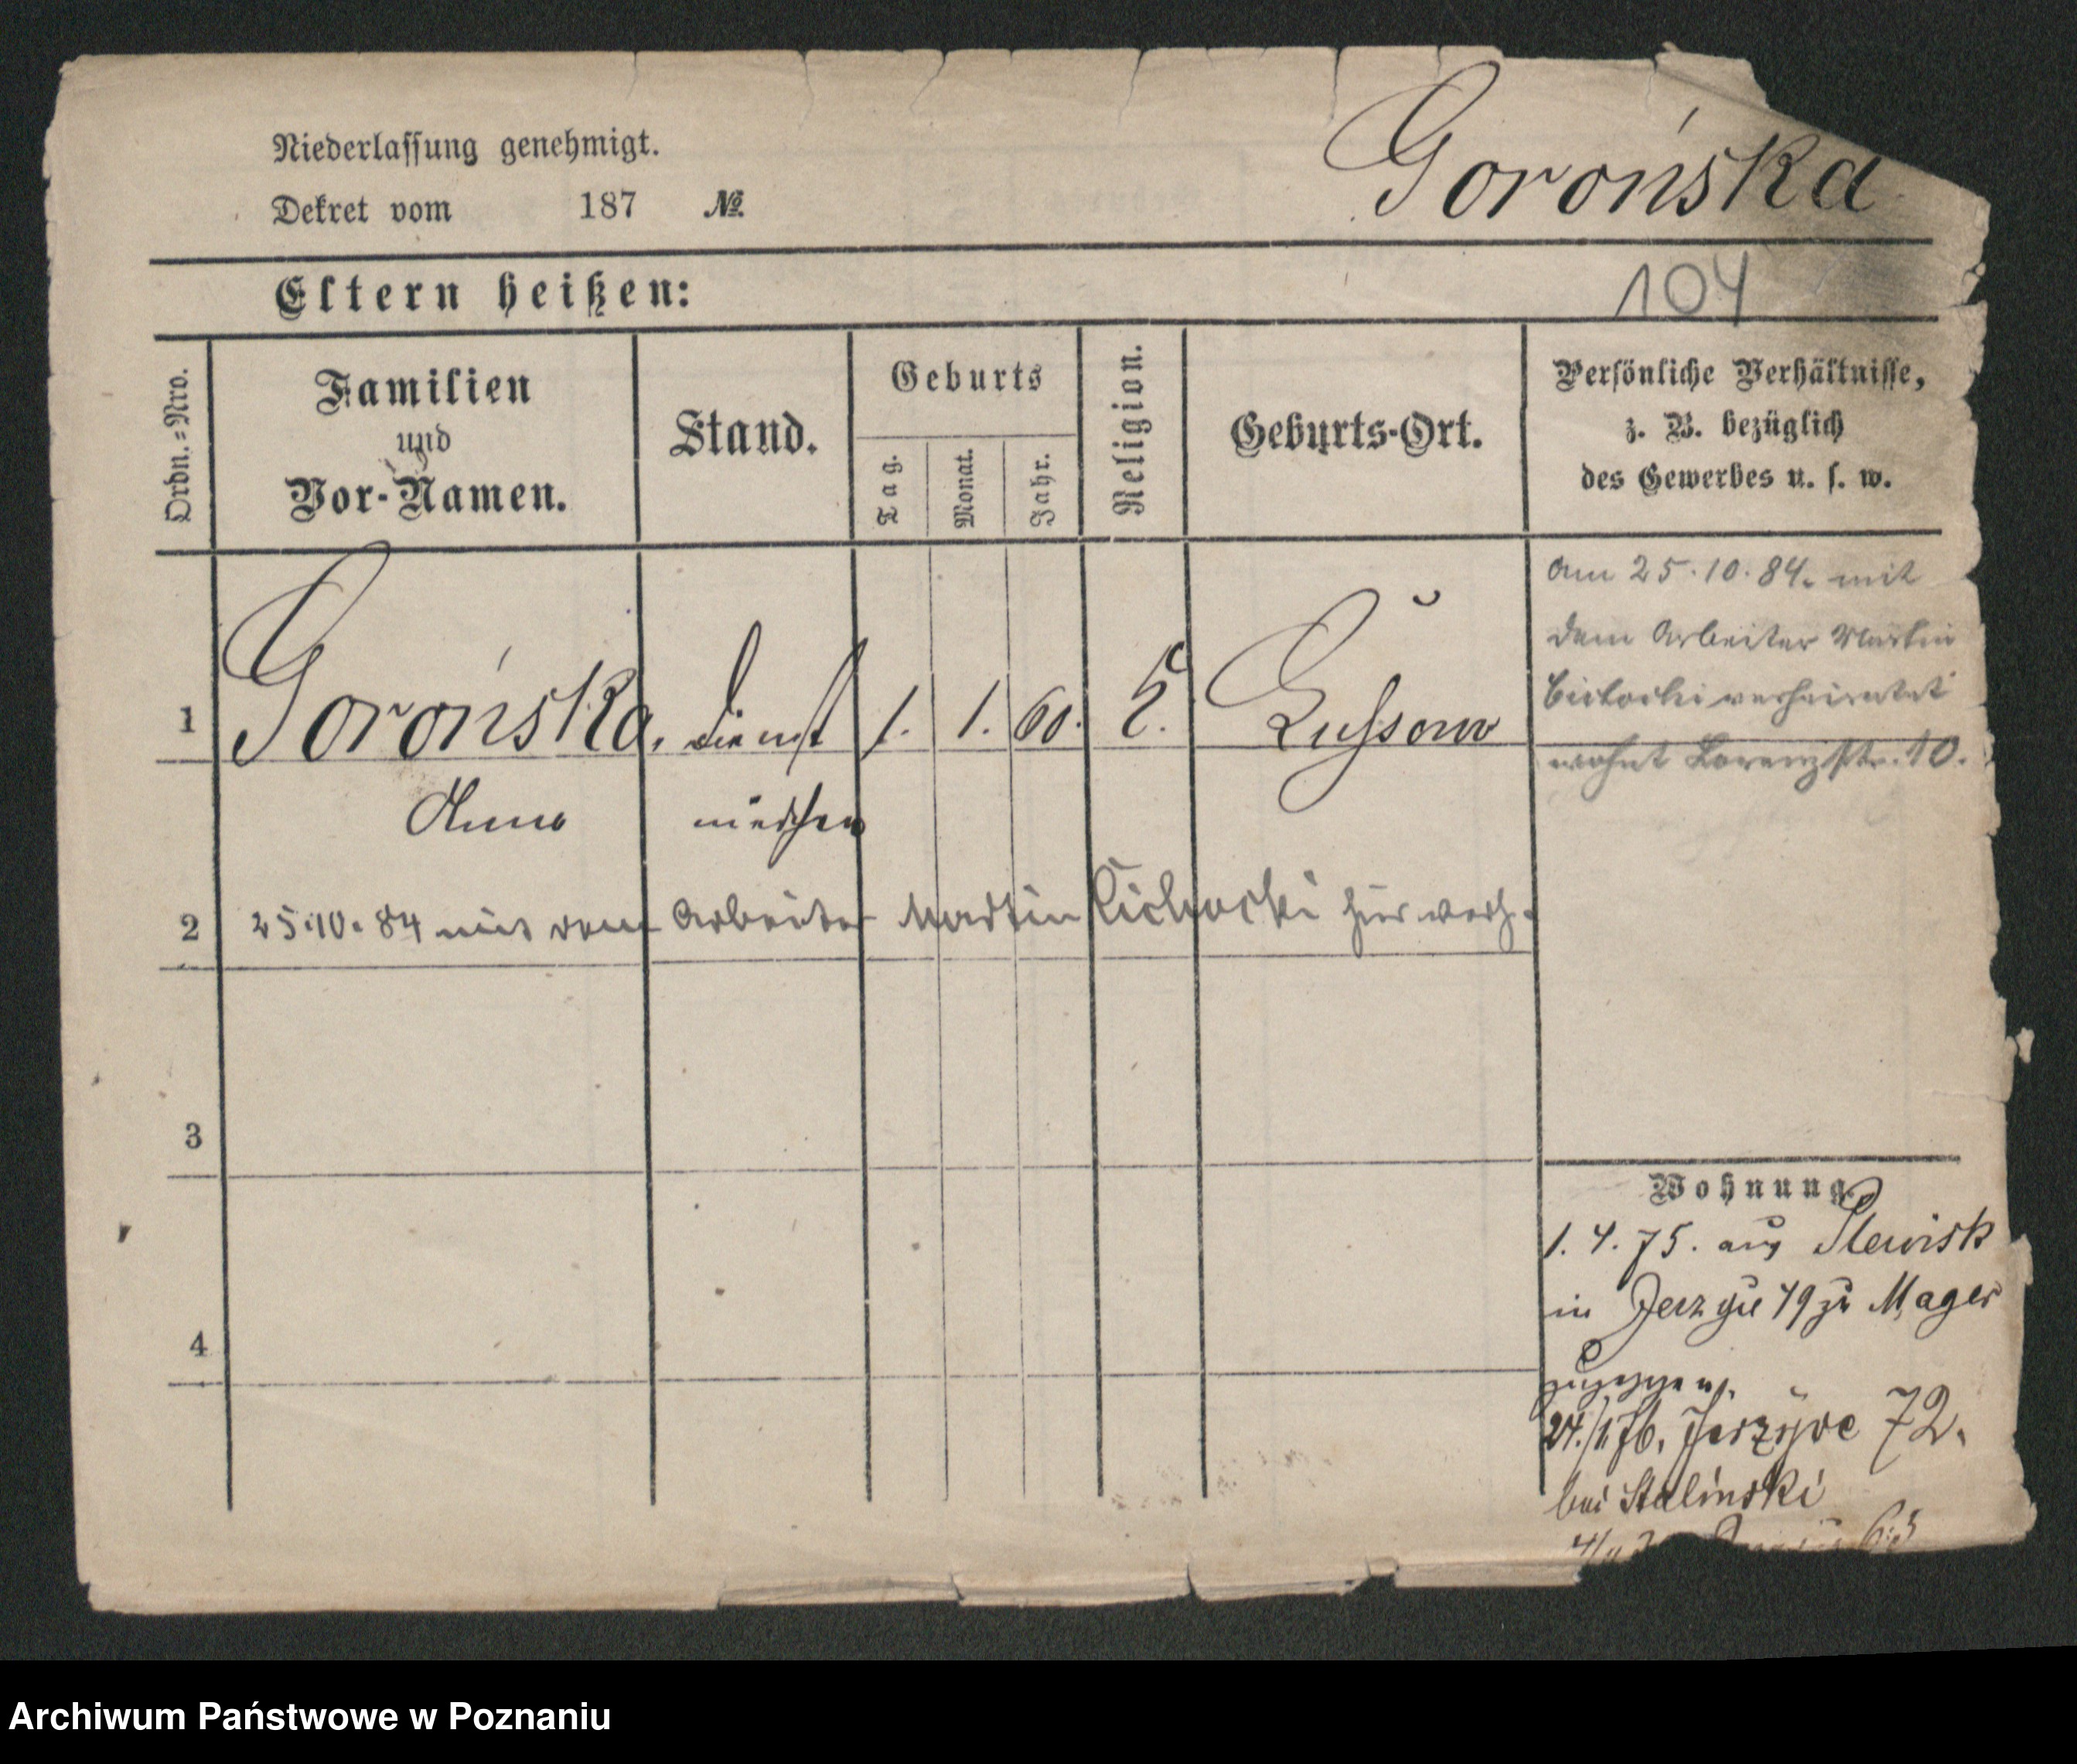 Niederlassung genehmigt.
Dekret vom 187 №
Gorońska
Eltern heißen:
104
Ordn.=Nro.
Familien
und
Vor-Namen.
Stand.
Geburts
Tag.
Monat.
Jahr.
Religion.
Geburts-Ort.
Persönliche Verhältnisse,
z. B. bezüglich
des Gewerbes u. s. w.
1 Gorońska, Dienst 1. 1. 60. Lussow
Anna mädchen
am 25.10.84. mit
dem Arbeiter Martin
Cichocki verheiratet
wohnt Lorenzstr. 10.
2 25.10.84 mit dem Arbeiter Martin Cichocki hier verh.
3
4
Wohnung.
1. 4. 75. aus Plewisk
in Jerzyce 79 zu Mager
zugezogen.
24./1.76. Jerzyce 72.
bei Stalinski
Archiwum Państwowe w Poznaniu